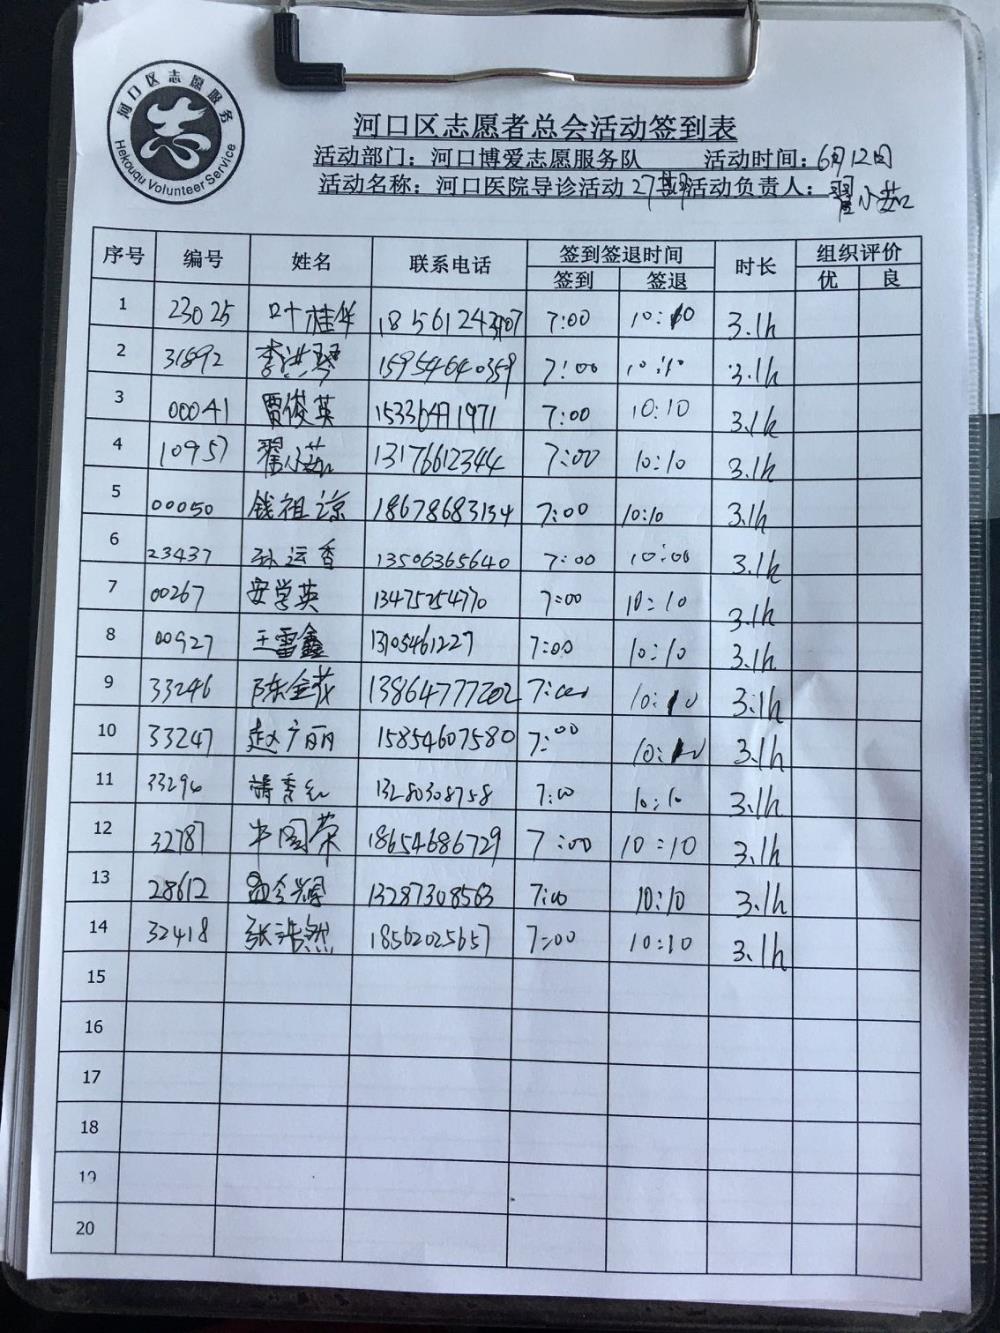 河口区志愿服务
Hekouqu Volunteer Service
河口区志愿者总会活动签到表
活动部门：河口博爱志愿服务队 活动时间：6月12日
活动名称：河口医院导诊活动27期 活动负责人：翟小茹
序号 编号 姓名 联系电话 签到签退时间 时长 组织评价
签到 签退 优 良
1 23025 叶桂华 18561243707 7:00 10:10 3.1h
2 31892 李洪琴 15954640359 7:00 10:10 3.1h
3 00041 贾俊英 15336491971 7:00 10:10 3.1h
4 10957 翟小茹 13176612344 7:00 10:10 3.1h
5 00050 钱祖凉 18678683134 7:00 10:10 3.1h
6 23437 孙运香 13506365640 7:00 10:00 3.1h
7 00267 安学英 13475254770 7:00 10:10 3.1h
8 00927 王雷鑫 13105461227 7:00 10:10 3.1h
9 33246 陈金花 13864777202 7:00 10:10 3.1h
10 33247 赵广丽 15854607580 7:00 10:10 3.1h
11 33294 秀红 13280308758 7:00 10:10 3.1h
12 32787 国荣 18654686729 7:00 10:10 3.1h
13 28612 13287308563 7:00 10:10 3.1h
14 32418 张浩然 18562025657 7:00 10:10 3.1h
15
16
17
18
19
20